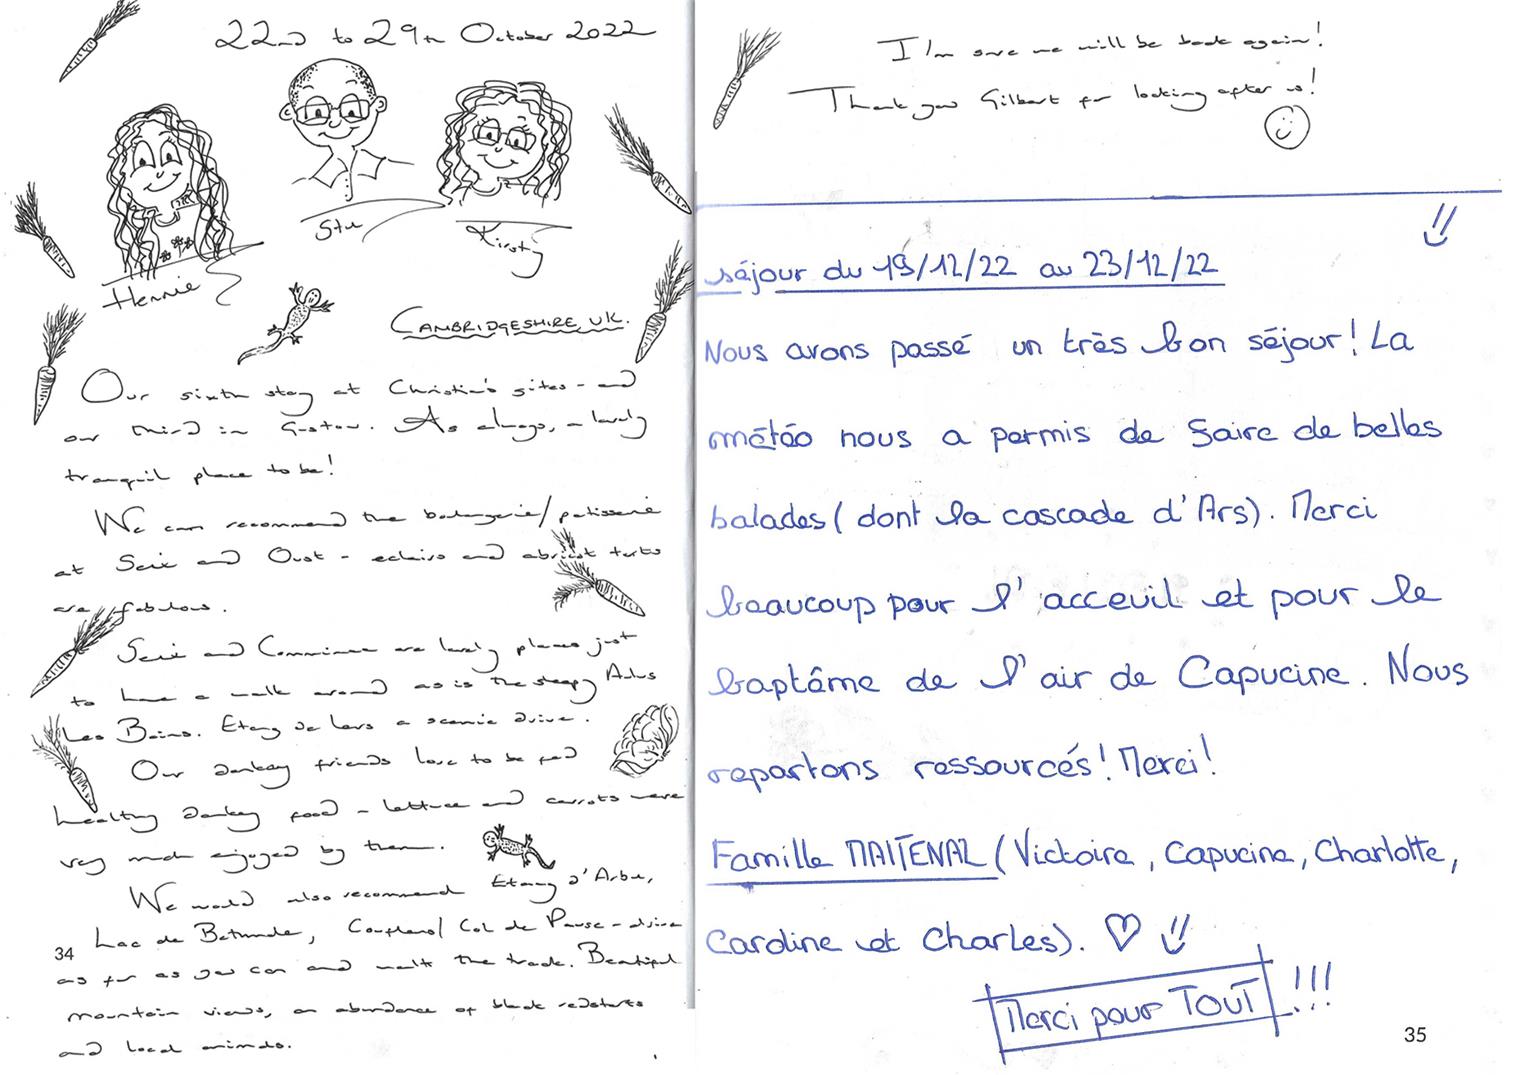 22nd to 29th October 2022
Hennie
Stu
Kirsty
CAMBRIDGESHIRE, UK.
Our sixth stay at Christine's gites - and
our third in Gustou. As always, a lovely
tranquil place to be!
We can recommend the boulangerie/patisserie
at Seix and Oust - eclairs and abricot tarts
are fabulous.
Seix and Comminac are lovely places just
to have a walk around as is the sleepy Aulus
Les Bains. Etang de Lers a scenic drive.
Our donkey friends love to be fed
healthy donkey food - lettuce and carrots were
very much enjoyed by them.
We would also recommend Etang d'Arbu,
Lac de Bethmale, Couflens/ Col de Pause - drive
as far as you can and walk the track. Beautiful
mountain views, an abundance of black redstarts
and local animals.
34
I'm sure we will be back again!
Thank you Gilbert for looking after us!
séjour du 19/12/22 au 23/12/22
Nous avons passé un très bon séjour! La
météo nous a permis de faire de belles
balades (dont la cascade d'Ars). Merci
beaucoup pour l'acceuil et pour le
baptême de l'air de Capucine. Nous
repartons ressourcés! Merci!
Famille MAITENAL (Victoire, Capucine, Charlotte,
Caroline et Charles). ♡
Merci pour TOUT !!!
35